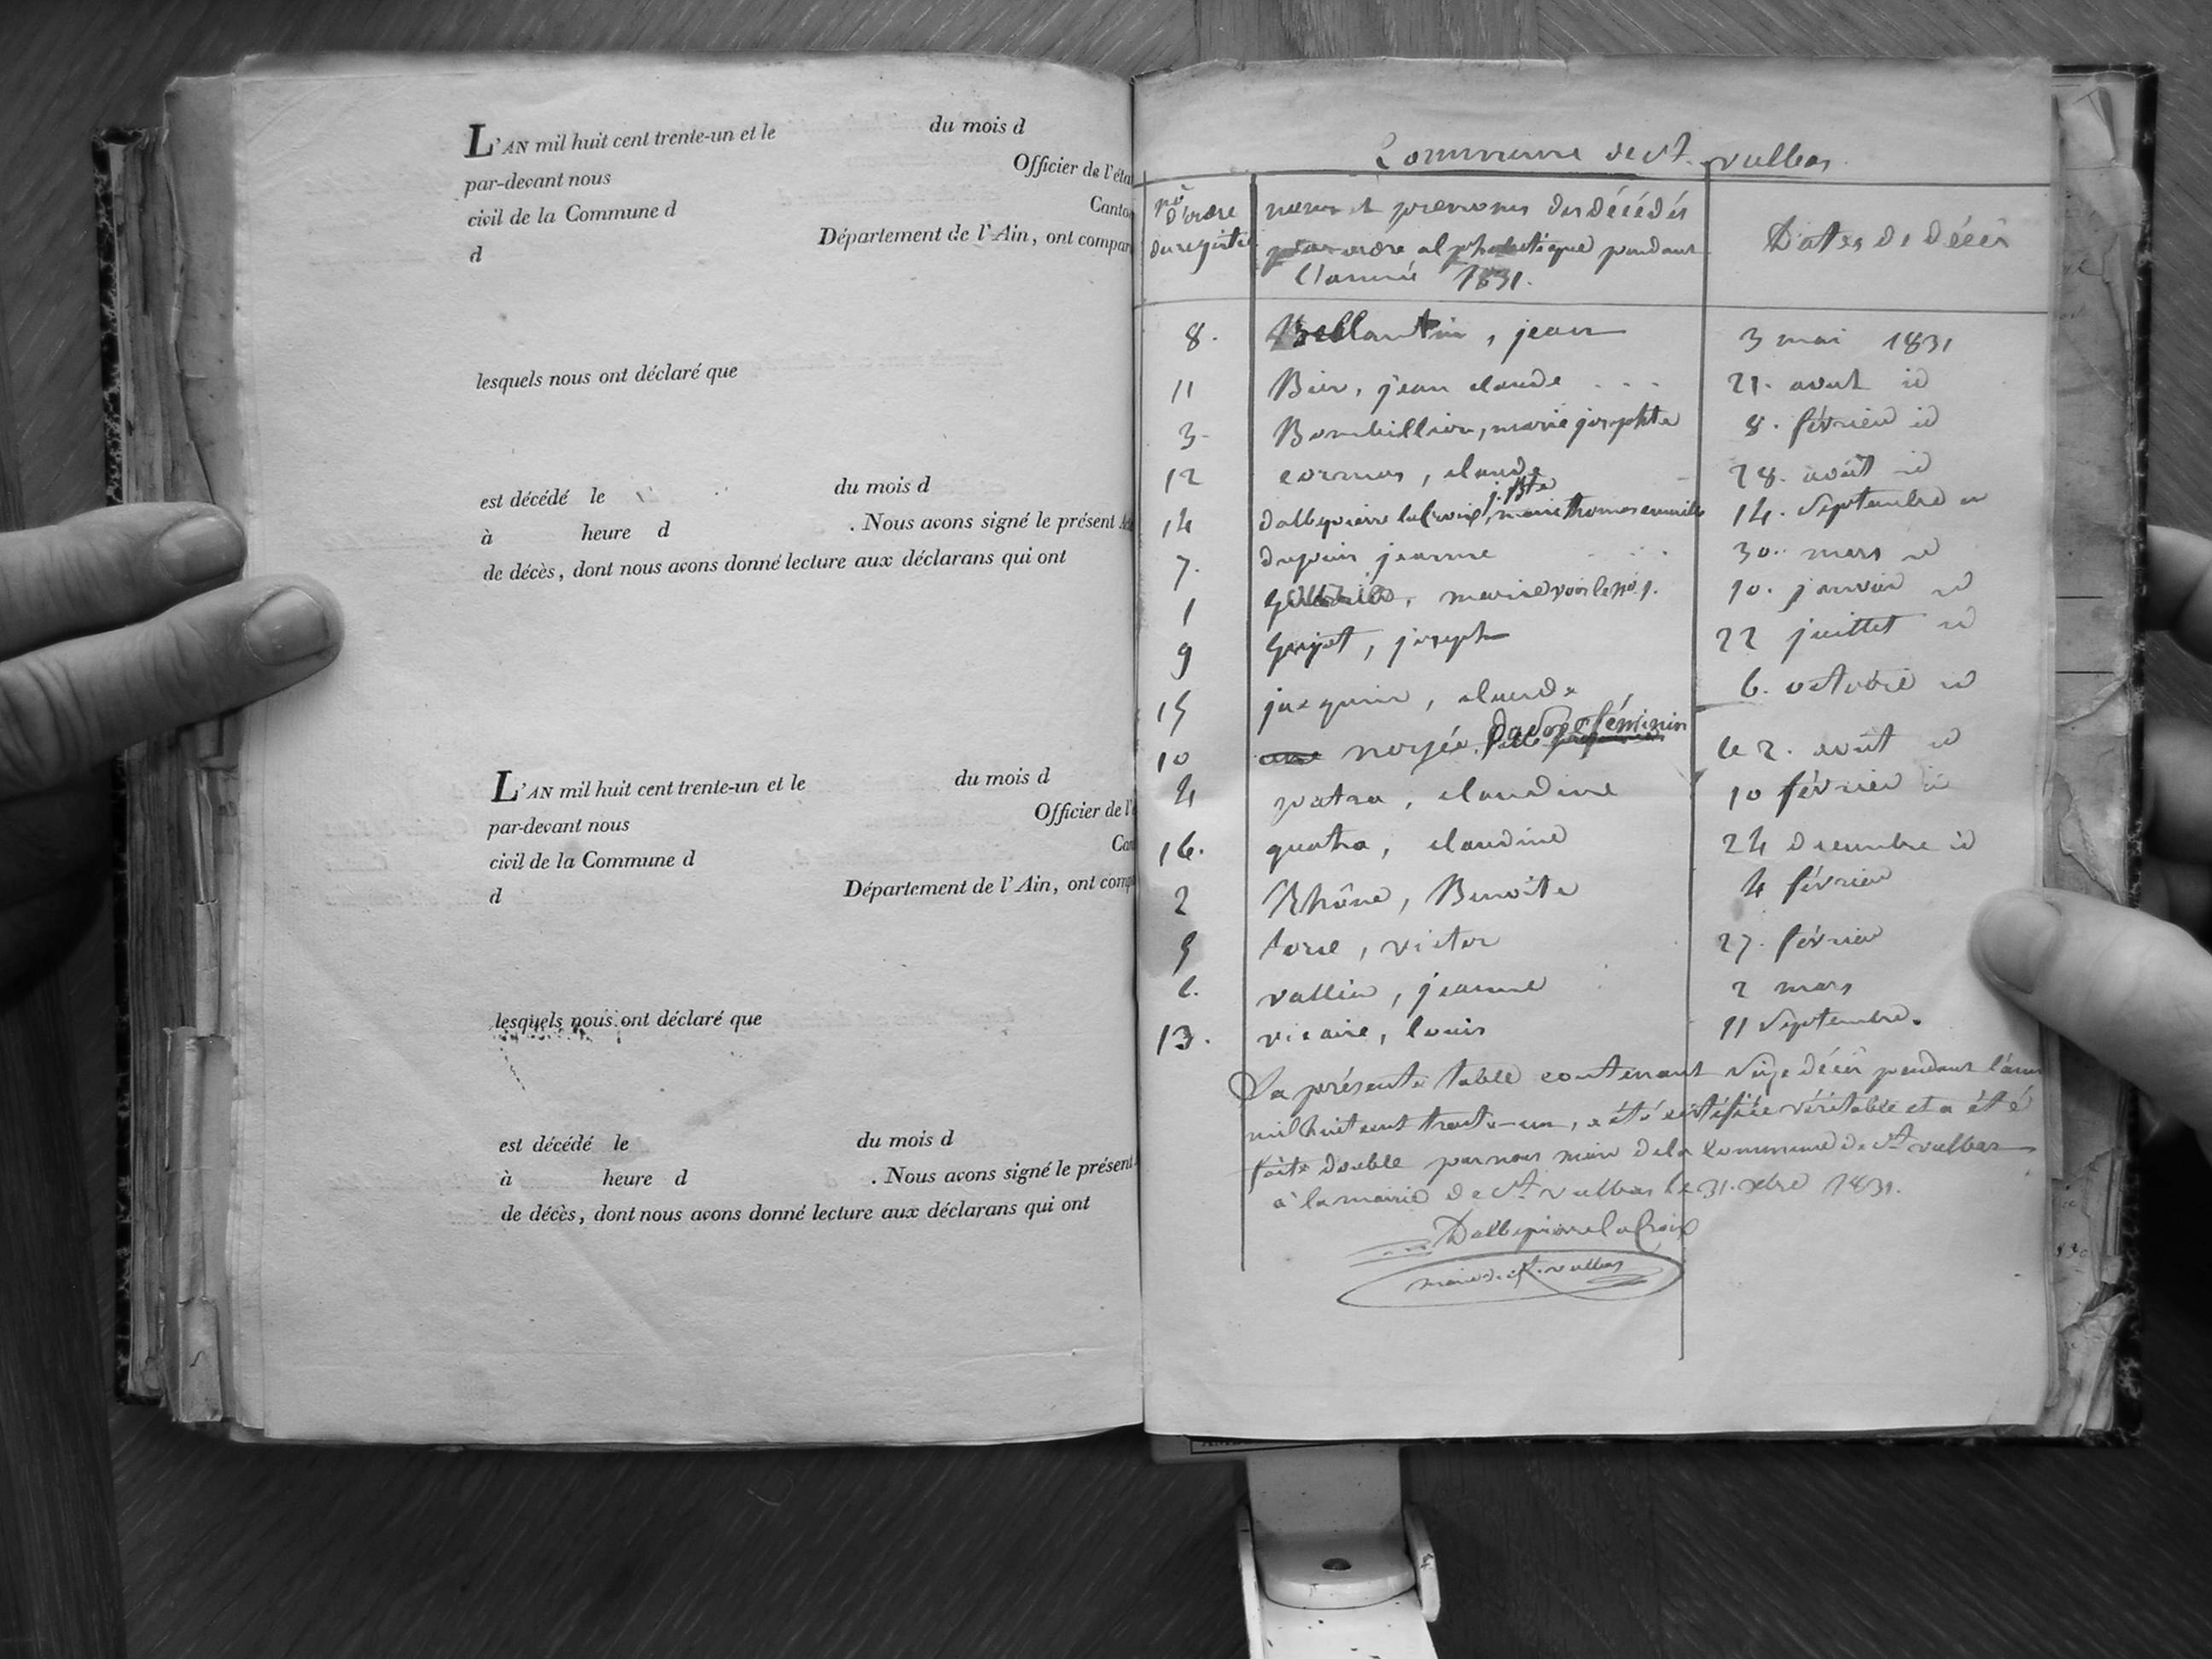 L'AN mil huit cent trente-un et le du mois d
par-devant nous Officier de l'éta
civil de la Commune d Canto
d Département de l'Ain, ont compar
lesquels nous ont déclaré que
est décédé le du mois d
à heure d . Nous avons signé le présent
de décès, dont nous avons donné lecture aux déclarans qui ont
L'AN mil huit cent trente-un et le du mois d
par-devant nous Officier de l'é
civil de la Commune d Can
d Département de l'Ain, ont comp
lesquels nous ont déclaré que
est décédé le du mois d
à heure d . Nous avons signé le présent
de décès, dont nous avons donné lecture aux déclarans qui ont
Commune de St. vulbas
no d'ordre du registre
noms et prenoms des décédés
par ordre alphabétique pendant
l'année 1831.
Dates de décès
8. Bellantin, jean 3 mai 1831
11 Bier, jean claude 21. aout id
3 Bombillion, marie josephte 8. février id
12 cormas, claude 28. août id
14 dallepierre lacroix, j. Bte thomas 14. Septembre id
7. dupuis jeanne 30. mars id
1 marie voir le no 1. 10. janvier id
9 Goujet, joseph 22 juillet id
15 jacquin, claude 6. octobre id
10 une noyée, du sexe féminin le 2. août id
4 patra, claudine 10 février id
16. quatra, claudine 24 decembre id
2 Rhône, Benoite 4 février
5 torse, victor 27. février
6. vallier, jeanne 2 mars
13. vicaire, louis 11 Septembre.
La présente table contenant seize décès pendant l'ann
mil huit cent trente-un, a été certifiée véritable et a été
faite double par nous maire de la commune de St vulbas
à la mairie de St vulbas le 31. xbre 1831.
Dallepierre laCroix
maire de St. vulbas